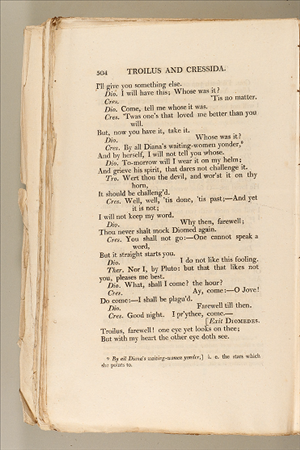 504 TROILUS AND CRESSIDA.
I'll give you something else.
Dio. I will have this; Whose was it?
Cres. 'Tis no matter.
Dio. Come, tell me whose it was.
Cres. 'Twas one's that loved me better than you
will.
But, now you have it, take it.
Dio. Whose was it?
Cres. By all Diana's waiting-women yonder,⁸
And by herself, I will not tell you whose.
Dio. To-morrow will I wear it on my helm;
And grieve his spirit, that dares not challenge it.
Tro. Wert thou the devil, and wor'st it on thy
horn,
It should be challeng'd.
Cres. Well, well, 'tis done, 'tis past;—And yet
it is not;
I will not keep my word.
Dio. Why then, farewell;
Thou never shalt mock Diomed again.
Cres. You shall not go:—One cannot speak a
word,
But it straight starts you.
Dio. I do not like this fooling.
Ther. Nor I, by Pluto: but that that likes not
you, pleases me best.
Dio. What, shall I come? the hour?
Cres. Ay, come:—O Jove!
Do come:—I shall be plagu'd.
Dio. Farewell till then.
Cres. Good night. I pr'ythee, come.—
[Exit DIOMEDES.
Troilus, farewell! one eye yet looks on thee;
But with my heart the other eye doth see.
⁸ By all Diana's waiting-women yonder,] i. e. the stars which
she points to.